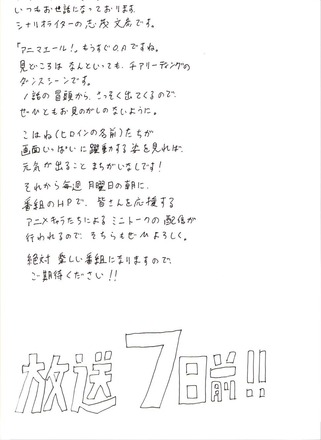 いつもお世話になっております。
シナリオライターの志茂文彦です。
「アニマエール!」もうすぐO.Aですね。
見どころは なんといっても、チアリーディングの
ダンスシーンです。
1話の冒頭から、さっそく出てくるので、
ぜひともお見のがしのないように。
こはね(ヒロインの名前)たちが
画面いっぱいに躍動する姿を見れば、
元気が出ること まちがいなしです!
それから毎週 月曜日の朝に、
番組のHPで、皆さんを応援する
アニメキャラたちによるミニトークの配信が
行われるので、そちらもぜひよろしく。
絶対 楽しい番組になりますので、
ご期待ください!!
放送7日前!!